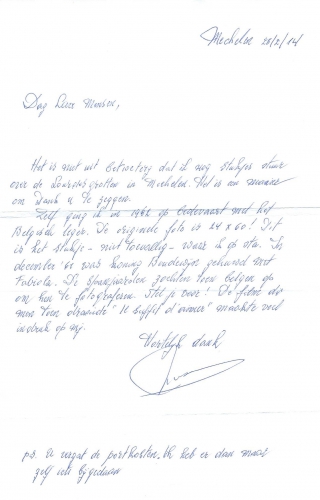 Mechelen 28/2/14
Dag Lieve Mensen,
Het is niet uit dat ik nog stukjes stuur
over de Lourdesgrotten in Mechelen. Het is om manier
om dank u te zeggen.
Zelf ging ik in 1962 op bedevaart met het
Belgisch leger. De originele foto is 24 x 60. Dit
is het stukje - niet toevallig - waar ik op sta. In
december '60 was koning Boudewijn gehuwd met
Fabiola. De zochten toen Belgen op
om hen te fotograferen. Stel je voor! De film die
men toen draaide "le d'amour" maakte veel
indruk op mij.
Hartelijk dank
p.s. Ik vergat de portkosten. Ik heb er dan maar
zelf iets bijgedaan